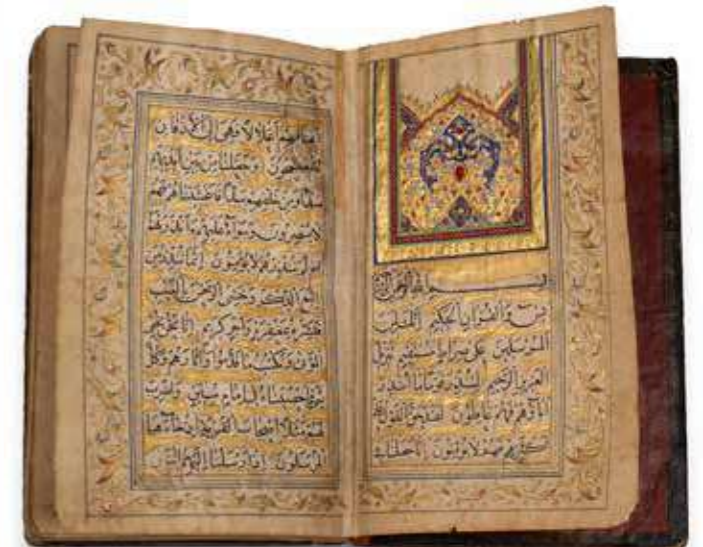 بسم الله الرحمن الرحيم
يس والقرآن الحكيم إنك لمن
المرسلين على صراط مستقيم تنزيل
العزيز الرحيم لتنذر قوما ما أنذر
آباؤهم فهم غافلون لقد حق القول على
أكثرهم فهم لا يؤمنون إنا جعلنا في
أعناقهم أغلالا فهي إلى الأذقان
فهم مقمحون وجعلنا من بين أيديهم
سدا ومن خلفهم سدا فأغشيناهم فهم
لا يبصرون وسواء عليهم أأنذرتهم
أم لم تنذرهم لا يؤمنون إنما تنذر من
اتبع الذكر وخشي الرحمن بالغيب
فبشره بمغفرة وأجر كريم إنا نحن نحيي
الموتى ونكتب ما قدموا وآثارهم وكل
شيء أحصيناه في إمام مبين واضرب
لهم مثلا أصحاب القرية إذ جاءها
المرسلون إذ أرسلنا إليهم اثنين